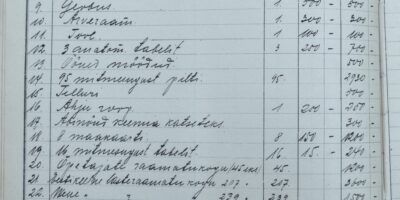 9. Gloobus 1 500 - 500
10. Arveraam 1 300 - 300
11. Tool 1 100 - 100
12. 3 anatom. tabelit 3 200 - 700
13. Õued mõõdud 500
14. 95 mitmesugust pilti 45 - 2930
15. Telluri
16. Ahju roop 1 200 -
17. Abinõud keemia katseteks - 300
18. 8 maakaarti 8 150 - 1200
19. 16 mitmesugust tabelit 16 15 - 240
20. Õpetajate raamatukogu (45 eks) 45 - 1200
21. Eestikeelne lasteraamatukogu 207 207 - 3000
22. Vene " " 239 239 - 1500